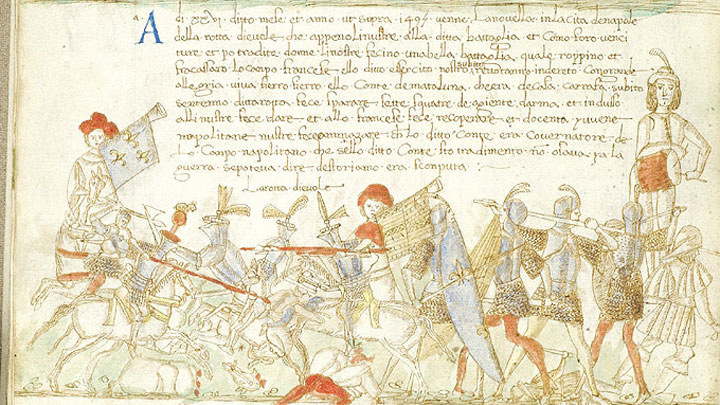 A di XXVI ditto mese et anno ut supra 1495 venne Lanovella in la cita de napole
della rotta dievole che appeno linostre alla ditta battaglia et como foro venci
ture et po tradite donne linostre fecino una bella battaglia quale roppino et
fracassaro lo campo francese ello ditto esercito nostro subito revoltaranno indereto con grande
allegria viva fierro fierro ello Conte de mataluna de casa carrafa subito
dittarotta fece sparare sette squatre de gente darma et indusso
alli nostre fece dare et allo francese fece recoperare et docenta iuvene
napolitane nustre fece ammazare lo ditto Conte era Covernatore de
Lo Campo napolitano che sello ditto Conte tradimento no olava la
guerra sepoteva dire destoriamo era sconputa
Larotta dievole